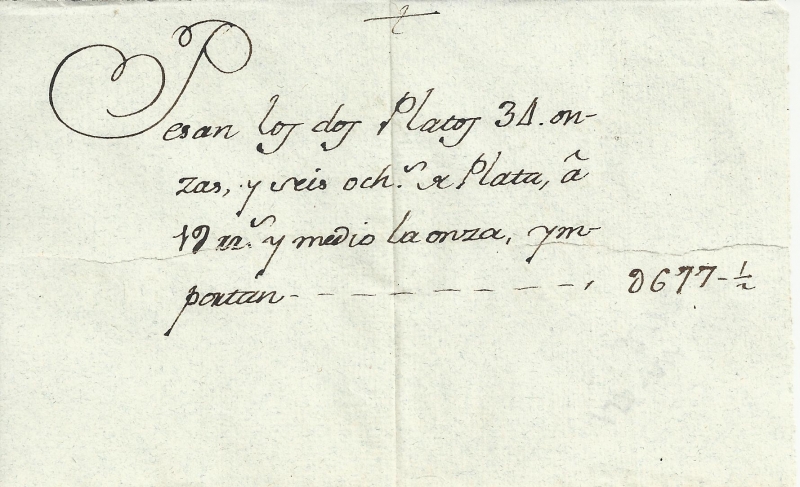 Pesan los dos Platos 34. on-
zas, y seis och.s de Plata, â
19 rr.s y medio la onza, ym-
portan - - - - - - - - , D677-½